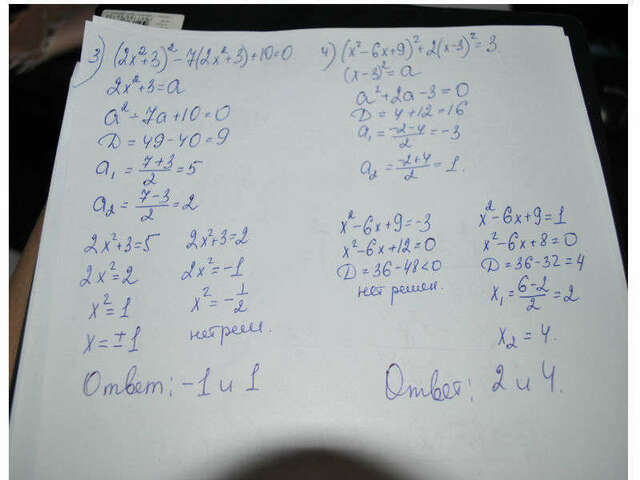 3) (2x²+3)² - 7(2x²+3)+10=0
2x²+3=a
a²-7a+10=0
D=49-40=9
a₁ = (7+3)/2 = 5
a₂ = (7-3)/2 = 2
2x²+3=5
2x²=2
x²=1
x=±1
2x²+3=2
2x²=-1
x²=-1/2
нет реш.
Ответ: -1 и 1
4) (x²-6x+9)²+2(x-3)²=3
(x-3)²=a
a²+2a-3=0
D=4+12=16
a₁=(-2-4)/2=-3
a₂=(-2+4)/2=1.
x²-6x+9=-3
x²-6x+12=0
D=36-48<0
нет решен.
x²-6x+9=1
x²-6x+8=0
D=36-32=4
x₁=(6-2)/2=2
x₂=4.
Ответ: 2 и 4.